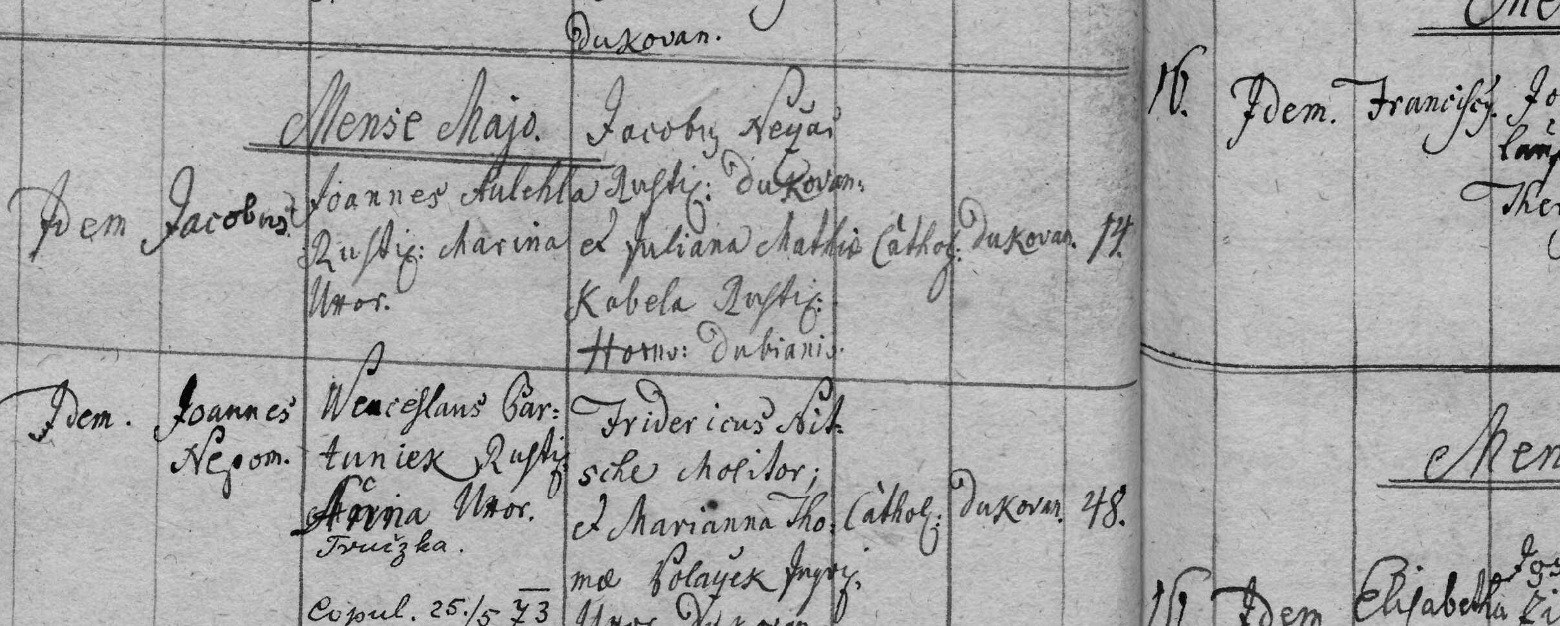 Dukovan.
Mense Majo.
Jacobus Nejas
Idem Jacobus.
Joannes Aulehla
Rustic: Marina
Uxor.
Rustic: Dukovan:
et Juliana Mathiæ
Kabela Rustic:
Horno: Dubianis.
Cathol: Dukovan. 14.
Idem. Joannes
Nepom.
Wenceslaus Bar:
tuniek Rustic:
Anna Uxor.
Copul. 25./5 73
Fridericus Nit:
sche Molitor;
et Marianna Tho:
mæ Polaczek
Uxor Dukovan
Cathol: Dukovan. 48.
16. Idem. Franciscus. Jo
The
Men
16 Idem Elisabetha